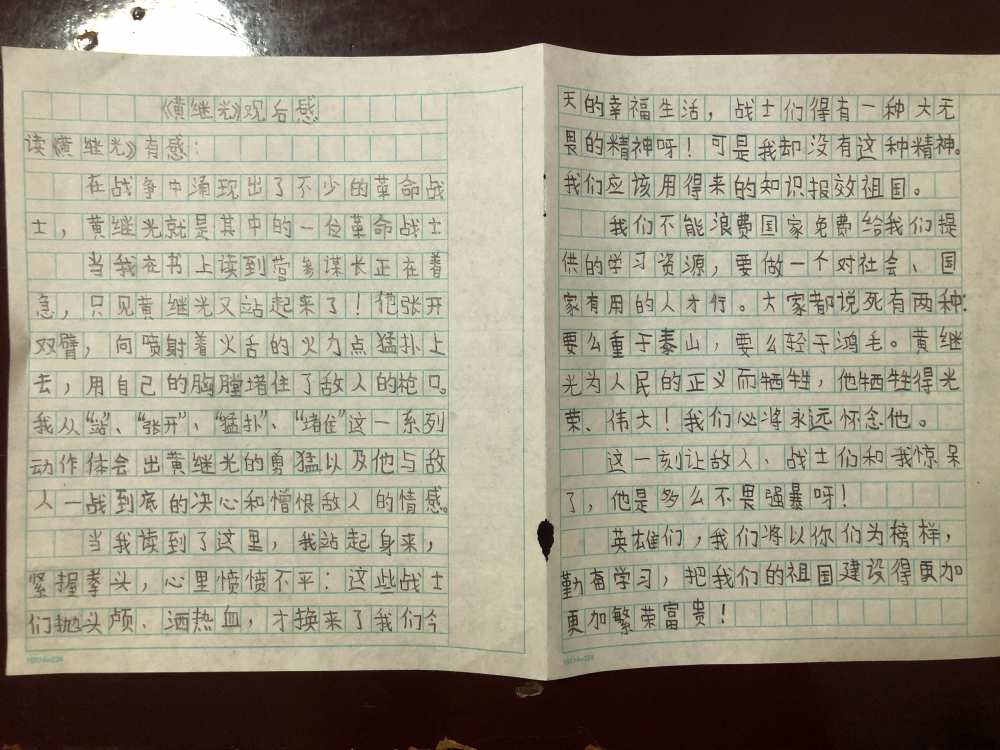 《黄继光》观后感
读《黄继光》有感：
在战争中涌现出了不少的革命战
士，黄继光就是其中的一位革命战士
当我在书上读到营参谋长正在着
急，只见黄继光又站起来了！他张开
双臂，向喷射着火舌的火力点猛扑上
去，用自己的胸膛堵住了敌人的枪口。
我从“站”、“张开”、“猛扑”、“堵住”这一系列
动作体会出黄继光的勇猛以及他与敌
人一战到底的决心和憎恨敌人的情感。
当我读到了这里，我站起身来，
紧握拳头，心里愤愤不平：这些战士
们抛头颅、洒热血，才换来了我们今
16X14=224
天的幸福生活，战士们得有一种大无
畏的精神呀！可是我却没有这种精神。
我们应该用得来的知识报效祖国。
我们不能浪费国家免费给我们提
供的学习资源，要做一个对社会、国
家有用的人才行。大家都说死有两种：
要么重于泰山，要么轻于鸿毛。黄继
光为人民的正义而牺牲，他牺牲得光
荣、伟大！我们必将永远怀念他。
这一刻让敌人、战士们和我惊呆
了，他是多么不畏强暴呀！
英雄们，我们将以你们为榜样，
勤奋学习，把我们的祖国建设得更加
更加繁荣富贵！
16X14=224